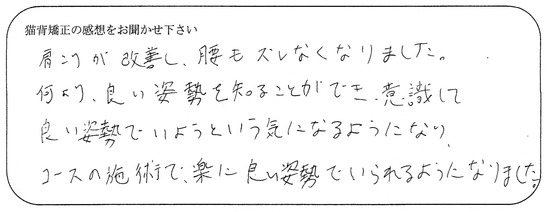 猫背矯正の感想をお聞かせ下さい
肩こりが改善し、腰もズレなくなりました。
何より、良い姿勢を知ることができ、意識して
良い姿勢でいようという気になるようになり、
コースの施術で、楽に良い姿勢でいられるようになりました。